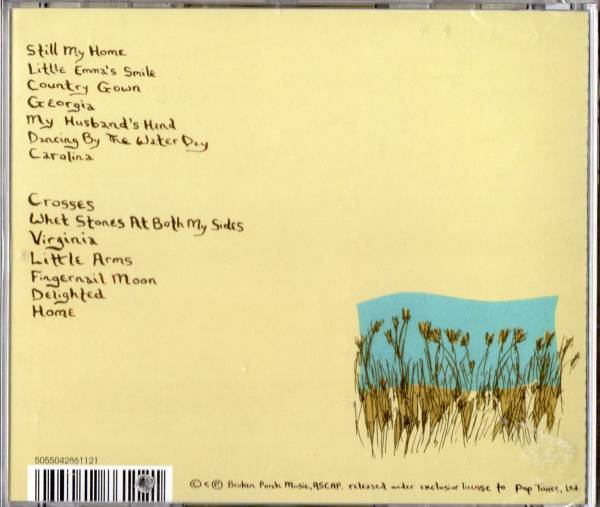 Still My Home
Little Emma's Smile
Country Gown
Georgia
My Husband's Hand
Dancing By The Water Day
Carolina
Crosses
Whet Stones At Both My Sides
Virginia
Little Arms
Fingernail Moon
Delighted
Home
5055042861121
© & ℗ Broken Porch Music, ASCAP. released under exclusive license to Pop Tones, Ltd.